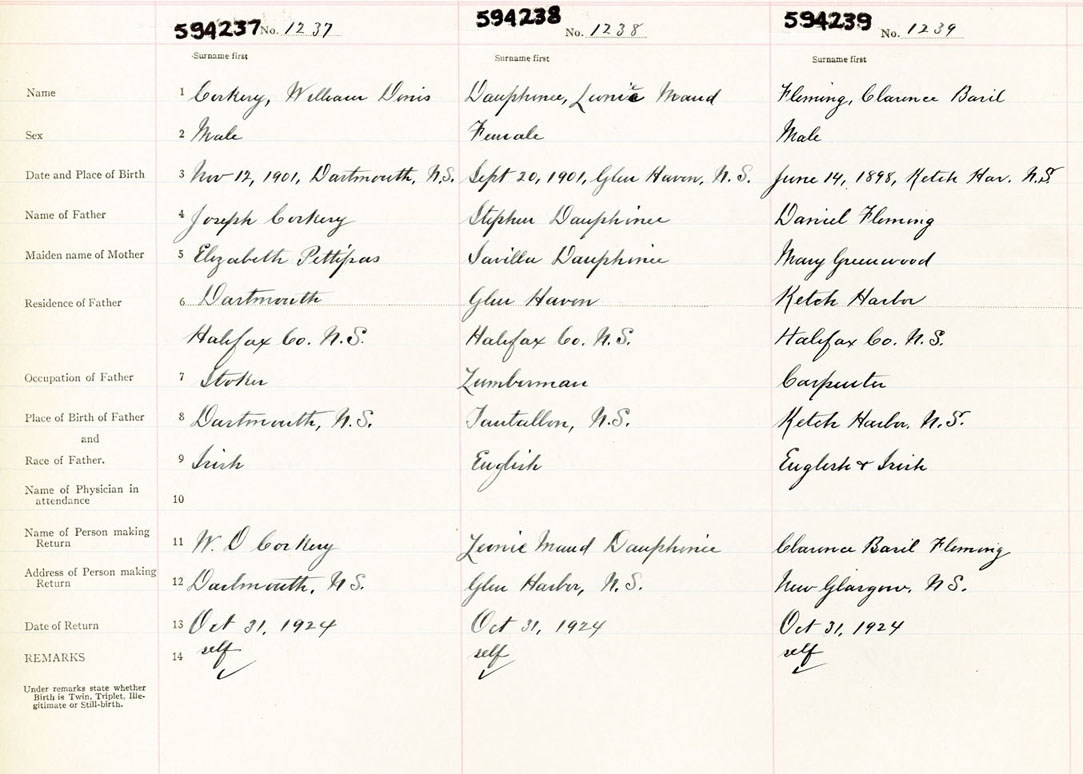 594237 No. 1237 594238 No. 1238 594239 No. 1239
Surname first Surname first Surname first
Name 1 Corkery, William Denis Dauphinee, Leonie Maud Fleming, Clarence Basil
Sex 2 Male Female Male
Date and Place of Birth 3 Nov 12, 1901, Dartmouth, N.S. Sept 20, 1901, Glen Haven, N.S. June 14, 1898, Ketch Har. N.S.
Name of Father 4 Joseph Corkery Stephen Dauphinee Daniel Fleming
Maiden name of Mother 5 Elizabeth Pettipas Savilla Dauphinee Mary Greenwood
Residence of Father 6 Dartmouth Glen Haven Ketch Harbor
Halifax Co. N.S. Halifax Co. N.S. Halifax Co. N.S.
Occupation of Father 7 Stoker Lumberman Carpenter
Place of Birth of Father 8 Dartmouth, N.S. Tantallon, N.S. Ketch Harbor, N.S.
and
Race of Father. 9 Irish English English & Irish
Name of Physician in
attendance 10
Name of Person making
Return 11 W. D Corkery Leonie Maud Dauphinee Clarence Basil Fleming
Address of Person making
Return 12 Dartmouth, N.S. Glen Harbor, N.S. New Glasgow, N.S.
Date of Return 13 Oct 31, 1924 Oct 31, 1924 Oct 31, 1924
REMARKS 14 self self self
Under remarks state whether
Birth is Twin, Triplet, Ille-
gitimate or Still-birth.